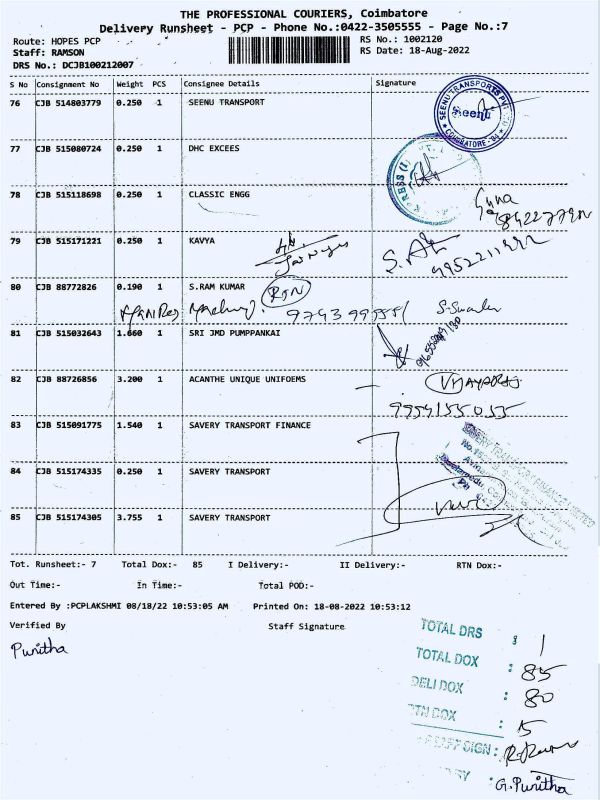 THE PROFESSIONAL COURIERS, Coimbatore
Delivery Runsheet - PCP - Phone No.:0422-3505555 - Page No.:7
Route: HOPES PCP RS No.: 1002120
Staff: RAMSON RS Date: 18-Aug-2022
DRS No.: DCJB100212007
S No Consignment No Weight PCS Consignee Details Signature
76 CJB 514803779 0.250 1 SEENU TRANSPORT
SEENU TRANSPORTS
Seenu
COIMBATORE
77 CJB 515080724 0.250 1 DHC EXCEES
78 CJB 515118698 0.250 1 CLASSIC ENGG
79 CJB 515171221 0.250 1 KAVYA
80 CJB 88772826 0.190 1 S.RAM KUMAR
RTN
81 CJB 515032643 1.660 1 SRI JMD PUMPPANKAI
82 CJB 88726856 3.200 1 ACANTHE UNIQUE UNIFOEMS
83 CJB 515091775 1.540 1 SAVERY TRANSPORT FINANCE
84 CJB 515174335 0.250 1 SAVERY TRANSPORT
85 CJB 515174305 3.755 1 SAVERY TRANSPORT
Tot. Runsheet:- 7 Total Dox:- 85 I Delivery:- II Delivery:- RTN Dox:-
Out Time:- In Time:- Total POD:-
Entered By :PCPLAKSHMI 08/18/22 10:53:05 AM Printed On: 18-08-2022 10:53:12
Verified By Staff Signature
Punitha
TOTAL DRS : 1
TOTAL DOX : 85
DELI DOX : 80
RTN DOX : 5
STAFF SIGN :
G. Punitha